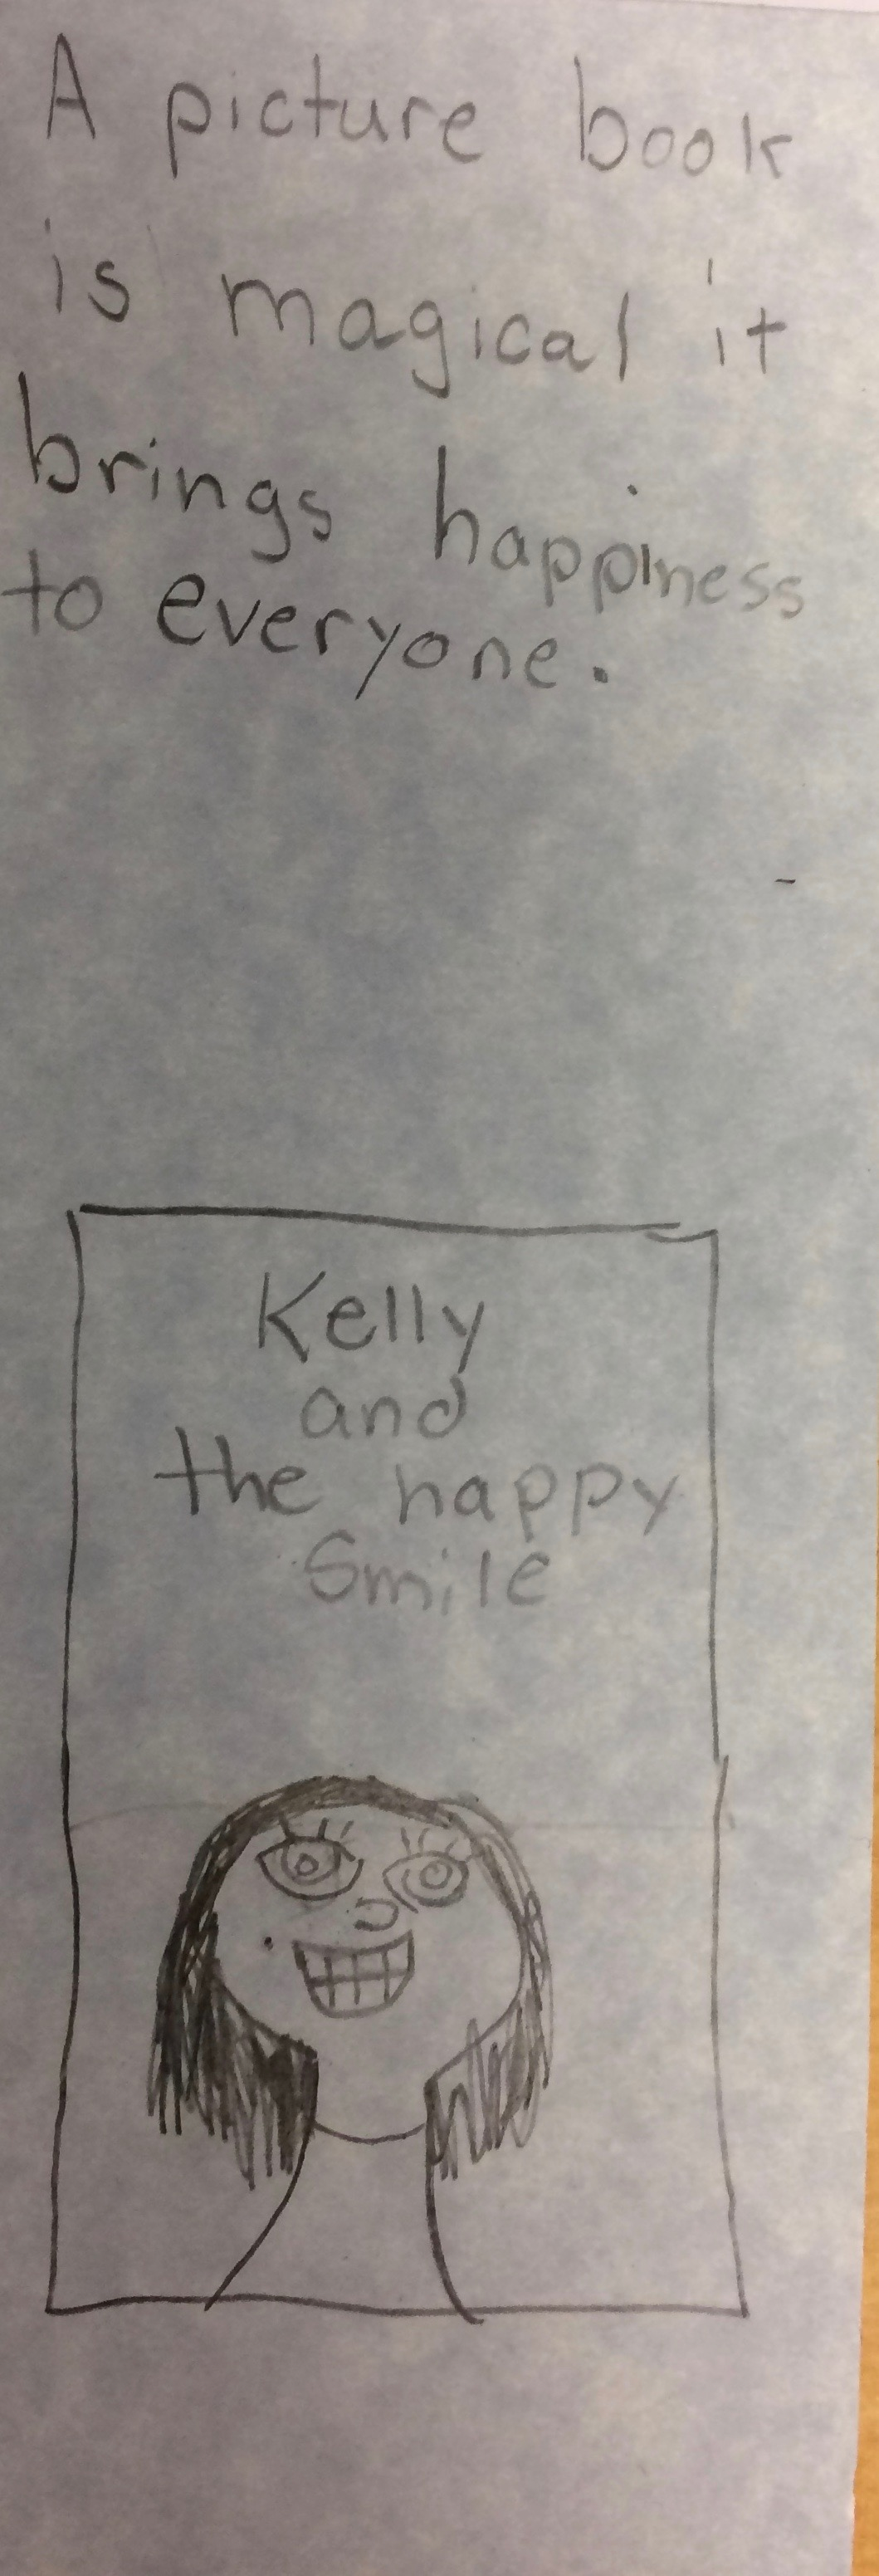 A picture book
is magical it
brings happiness
to everyone.
Kelly
and
the happy
Smile